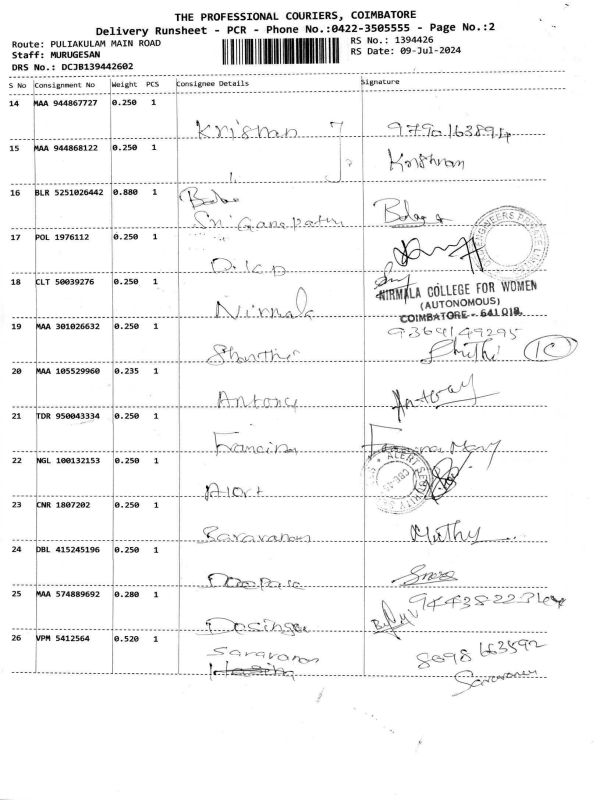 THE PROFESSIONAL COURIERS, COIMBATORE
Delivery Runsheet - PCR - Phone No.:0422-3505555 - Page No.:2
Route: PULIAKULAM MAIN ROAD
RS No.: 1394426
Staff: MURUGESAN
RS Date: 09-Jul-2024
DRS No.: DCJB139442602
S No Consignment No Weight PCS Consignee Details Signature
14 MAA 944867727 0.250 1
Krishnan
15 MAA 944868122 0.250 1
Krishnan
16 BLR 5251026442 0.880 1
Sri Ganapathy
17 POL 1976112 0.250 1
ENGINEERS PRIVATE
18 CLT 50039276 0.250 1
NIRMALA COLLEGE FOR WOMEN
(AUTONOMOUS)
COIMBATORE - 641 018.
Nirmala
19 MAA 301026632 0.250 1
9369149295
Shanthi
20 MAA 105529960 0.235 1
Antony Antony
21 TDR 950043334 0.250 1
Francina
22 NGL 100132153 0.250 1
ALERT SECURITY
Alert
23 CNR 1807202 0.250 1
Saravanan Muthy
24 DBL 415245196 0.250 1
25 MAA 574889692 0.280 1
26 VPM 5412564 0.520 1
Saravanan
8098 663592
Saravanan